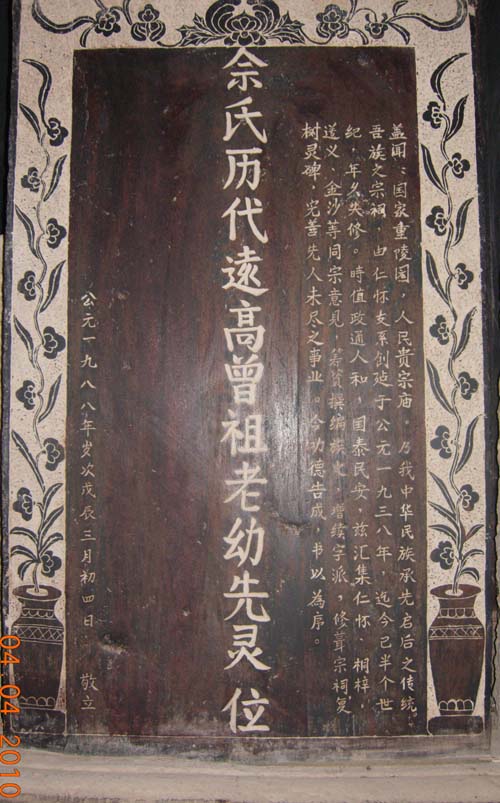 盖闻：国家重陵园，人民贵宗庙。乃我中华民族承先启后之传统。
吾族之宗祠，由仁怀支系创建于公元一九三八年，迄今已半个世
纪，年久失修。時值政通人和，国泰民安，兹汇集仁怀、桐梓，
遵义、金沙等同宗意见，筹资撰编族史，增续字派，修葺宗祠复
树灵碑，完善先人未尽之事业。今功德告成，书以為序。
佘氏历代逺高曾祖老幼先灵位
公元一九八八年岁次戊辰三月初四日 敬立
04 04 2010